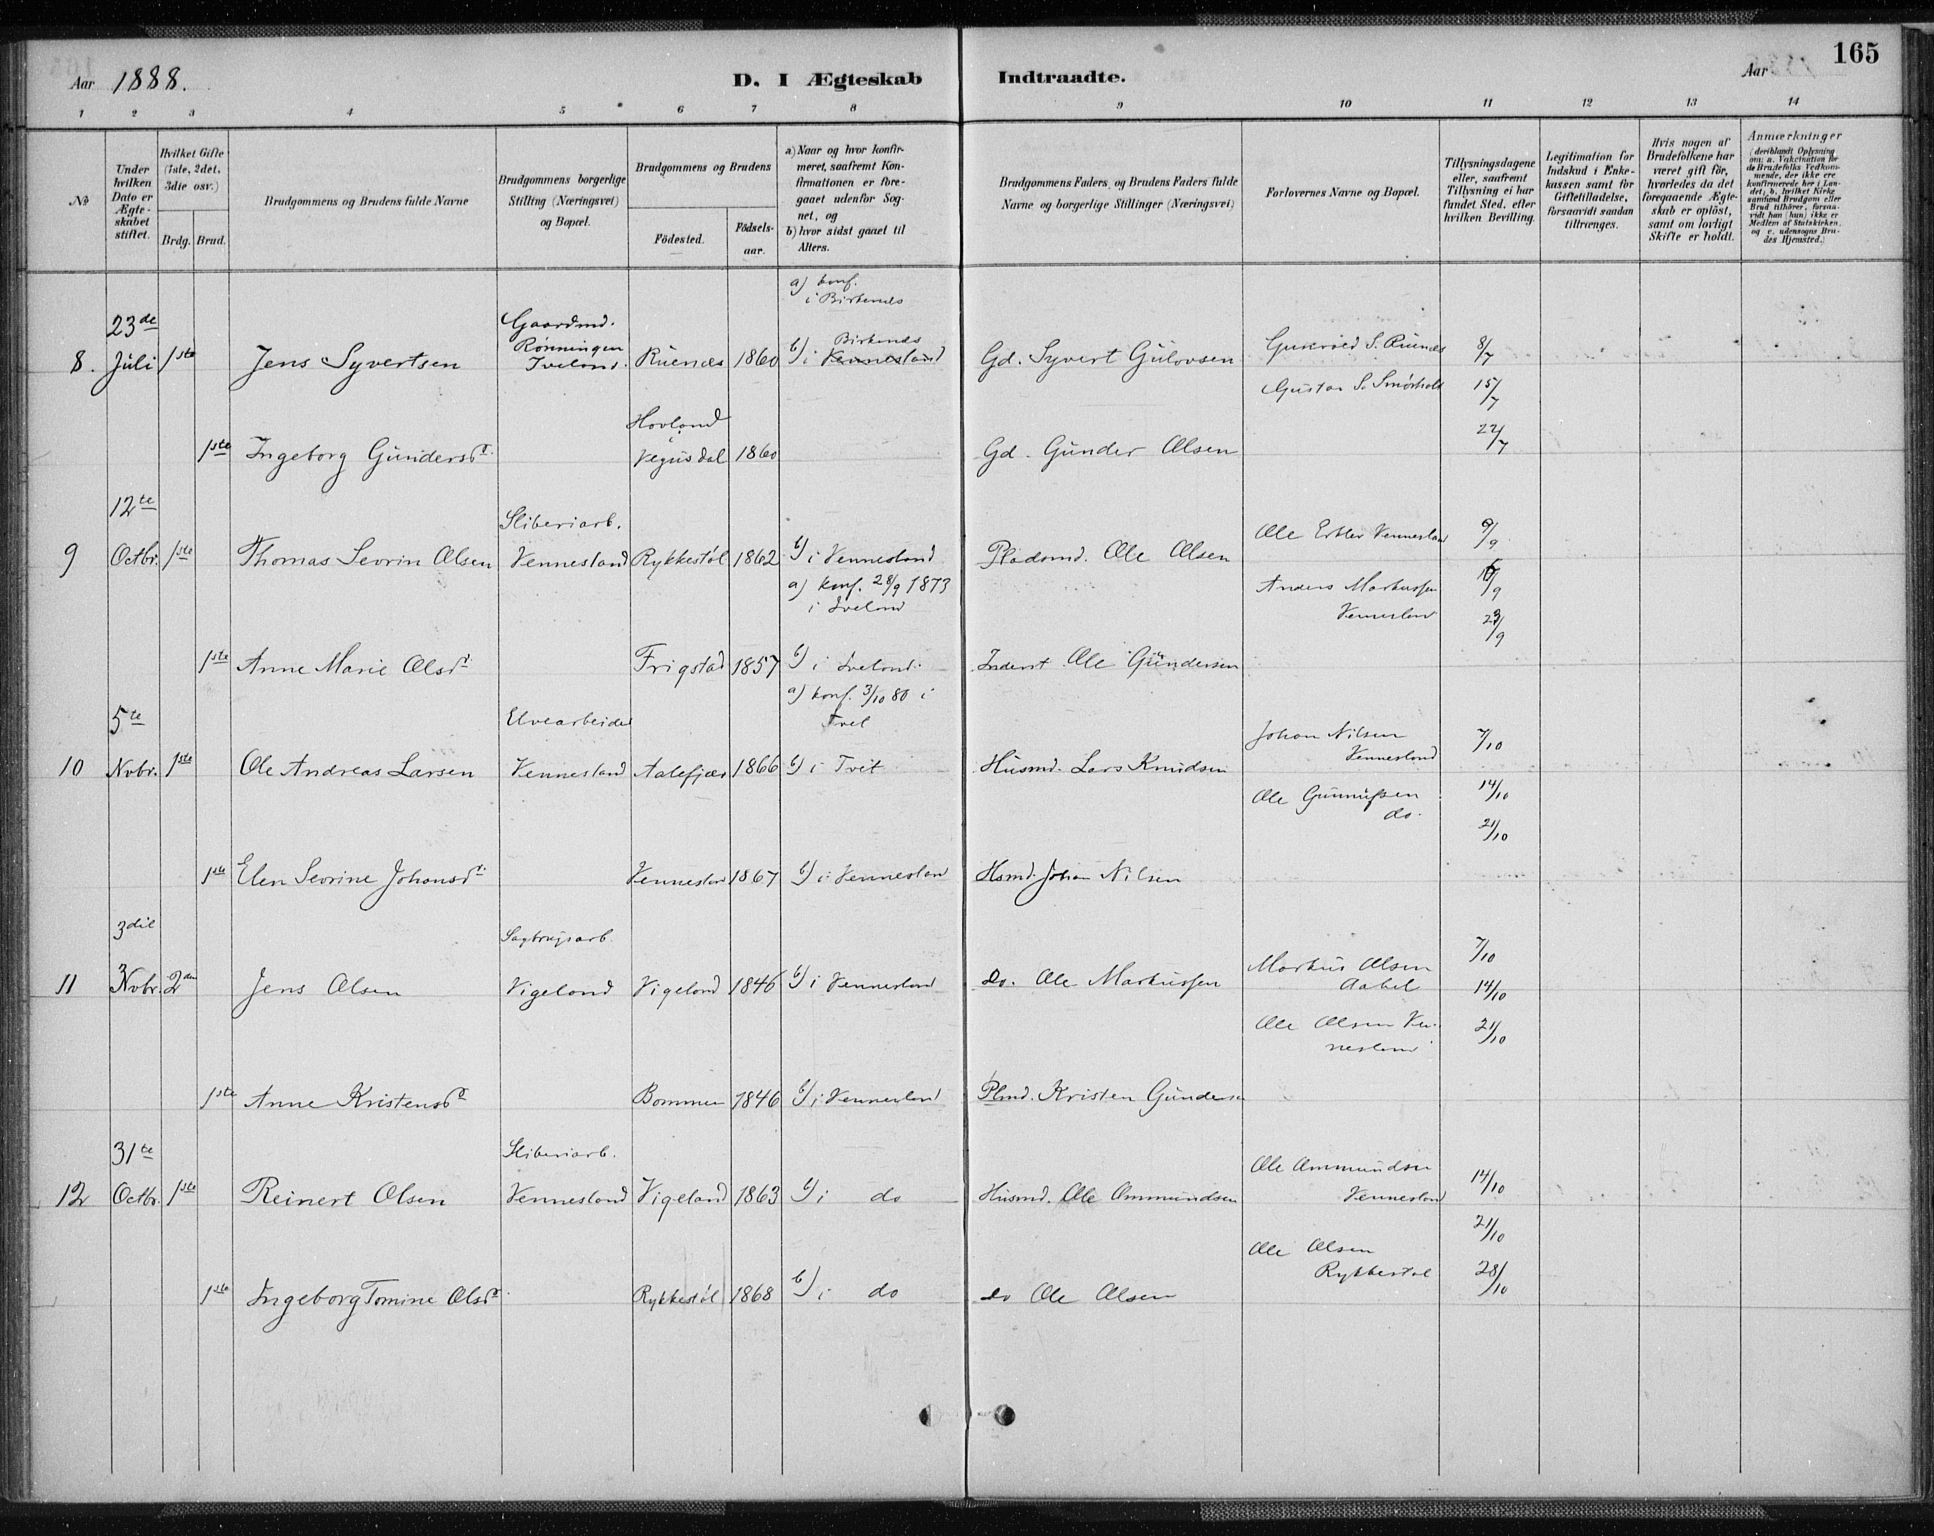 Aar 1888.
D. I Ægteskab Indtraadte.
Aar
165
1 2 3 4 5 6 7 8 9 10 11 12 13 14
No
Under hvilken Dato er Ægte-skabet stiftet.
Hvilket Gifte (1ste, 2det, 3die osv.)
Brdg. Brud.
Brudgommens og Brudens fulde Navne
Brudgommens borgerlige Stilling (Næringsvei) og Bopæl.
Brudgommens og Brudens
Födested. Födsels-aar.
a) Naar og hvor konfir-meret, saafremt Kon-firmationen er fore-gaaet udenfor Sog-net, og
b) hvor sidst gaaet til Alters.
Brudgommens Faders, og Brudens Faders fulde Navne og borgerlige Stillinger (Næringsvei)
Forlovernes Navne og Bopæl.
Tillysningsdagene eller, saafremt Tillysning ei har fundet Sted, efter hvilken Bevilling.
Legitimation for Indskud i Enke-kassen samt for Giftetilladelse, forsaavidt saadan tiltrænges.
Hvis nogen af Brudefolkene har været gift før, hvorledes da det foregaaende Ægte-skab er oplöst, samt om lovligt Skifte er holdt.
Anmærkninger (deriblandt Oplysning om: a. Vakcination for de Brudefolks Vedkom-mende, der ikke ere konfirmerede her i Lan-det, b. hvilket Kirke samfund Brudgom eller Brud tilhører, forsaa-vidt han (hun) ikke er Medlem af Statskirken, og c. udensogns Bru-des Hjemsted.)
a) konf.
i Birkenes
23de Gaardmd.
Rønningen Birkenes
8. Juli 1ste Jens Syvertsen Iveland. Rüenes 1860 b) i Vennesland Gd. Syvert Gulovsen S. Rüenes 8/7
Gustav S. 15/7
Hovland
i 22/7
1ste Ingeborg Gundersdr. Vegusdal 1860 Gd. Gunder Olsen
12te Sliberiarb.
9 Octbr. 1ste Thomas Sevrin Olsen Vennesland Rykkestøl 1862 b) i Vennesland Pladsmd. Ole Olsen Ole Vennesland 9/9
a) konf. 28/9 1873 Anders Markussen 16/9
i Iveland Vennesland 23/9
1ste Anne Marie Olsdr Frigstad 1857 b) i Iveland. Inderst Ole Gundersen
a) konf. 3/10 80 i
5te Elvearbeider Tvet
Johan Nilsen 7/10
10 Nvbr. 1ste Ole Andreas Larsen Vennesland Aalefjær 1866 b) i Tvet Husmd. Lars Knudsen Vennesland
Ole Gunnufsen 14/10
do. 21/10
1ste Elen Sevrine Johansdr. Vennesland 1867 b) i Vennesland Hsmd. Johan Nilsen
3die Sagbrugsarb. 7/10
11 Nvbr. 2den Jens Olsen Vigeland Vigeland 1846 b) i Vennesland do. Ole Markussen Markus Olsen
Aabel 14/10
Ole Olsen Ven- 21/10
nesland
1ste Anne Kristensdr Bommen 1846 b) i Vennesland Plmd. Kristen Gundersen
31te Sliberiarb.
Ole Ommundsen 14/10
12 Octbr. 1ste Reinert Olsen Vennesland Vigeland 1863 b) i do Husmd. Ole Ommundsen Vennesland
21/10
Ole Olsen
Rykkestøl 28/10
1ste Ingeborg Tomine Olsdr. Rykkestøl 1868 b) i do do Ole Olsen